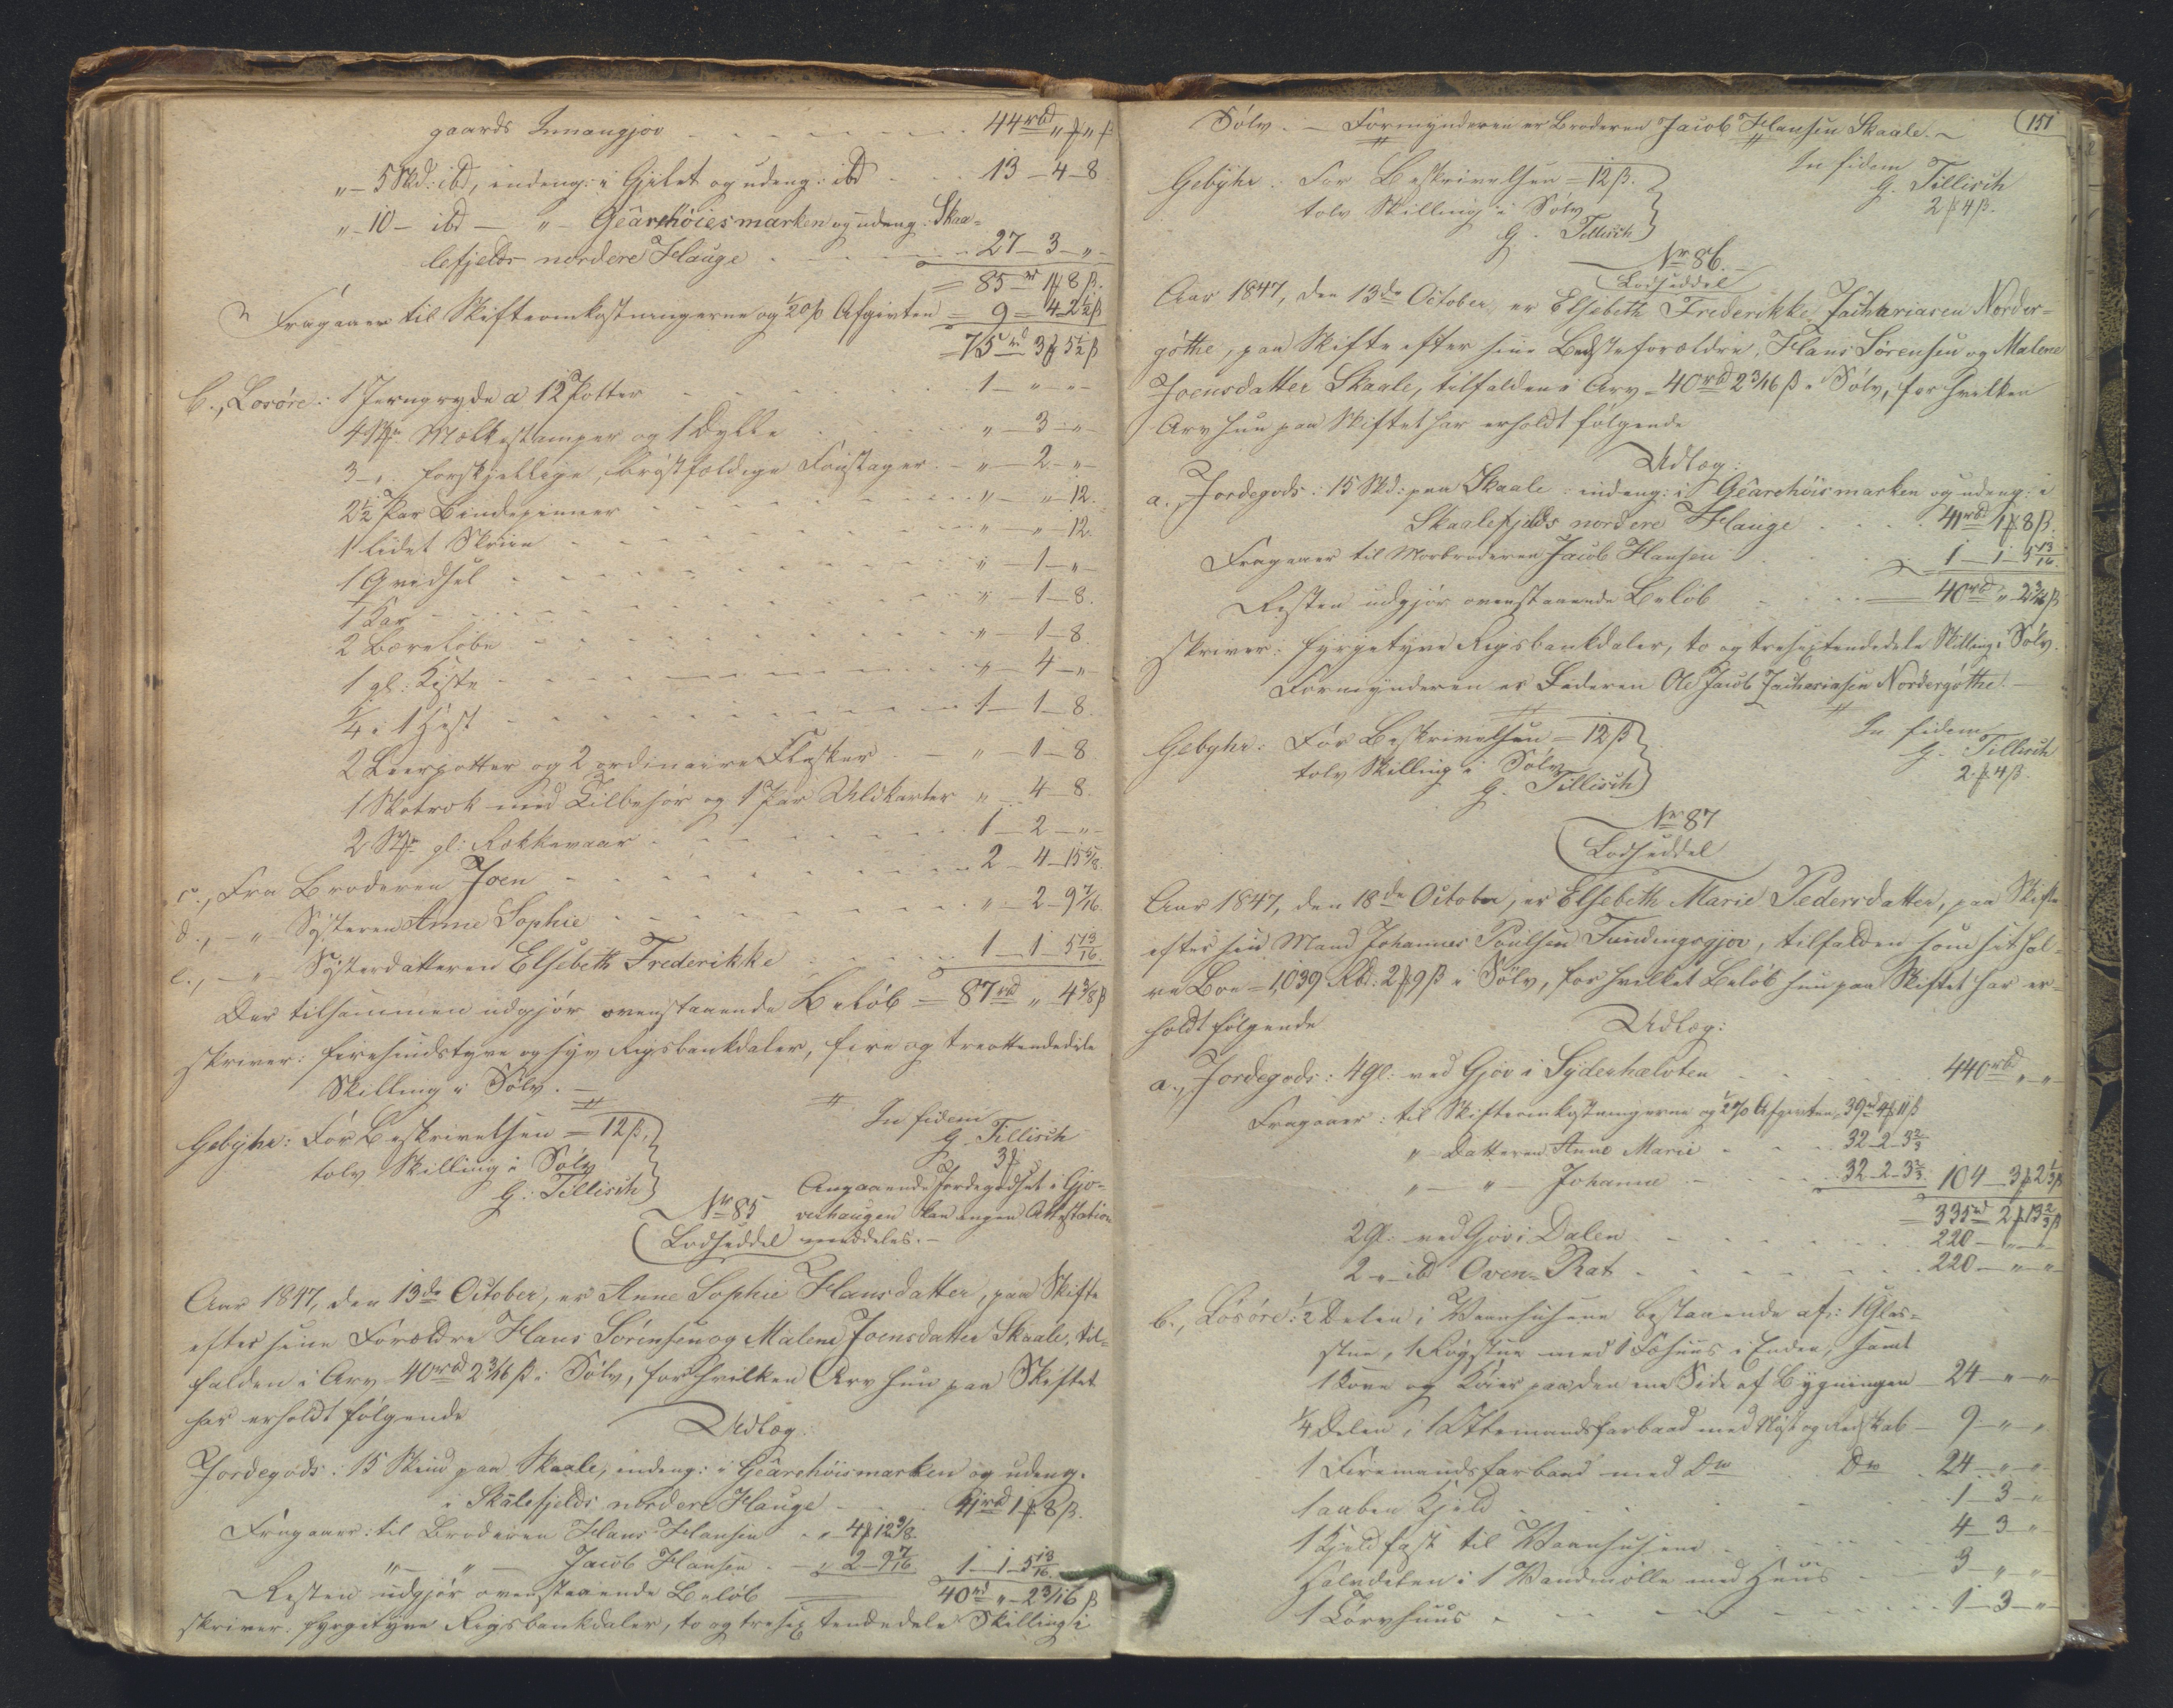 gaards Innangjov - - - - - - - 44 rbd „ ƒ „ ß
„ - 5 Skd: ibd, indeng: i Gjilet og udeng: ibd - - 13 - 4 - 8.
„ - 10 - ibd - „ - Gêarehöiesmarken og udeng: Skaa-
lefjelds nordere Hauge - - - - - 27 - 3 - „ -
= 85 rd 1ƒ 8 ß.
Fragaaer til Skifteomkostningerne og ½ 0/0 Afgivten = 9 - 4 2½ ß
= 75 rd 3ƒ 5½ ß
b., Losöre: 1 Jerngryde a 12 Potter - - - - 1 - „ - „ -
4 Stkr Mælkestamper og 1 Bylle - - - „ - 3 - „ -
3 - „ forskjellige, bröstfældige Foustager - „ - 2 - „ -
2½ Par Bindepinner - - - - „ - „ - 12.
1 lidet Skriin - - - - „ - „ - 12.
1 Gredsel - - - - „ - 1 - „ -
1 Kar - - - - „ - 1 - 8.
2 Bæreløbe - - - - „ - 1 - 8.
1 gl: Kiste - - - - „ - 4 - „ -
¼ i 1 Hest - - - - 1 - 1 - 8.
2 Leerpotter og 2 ordinaire Flasker - „ - 1 - 8.
1 Skotrok med Tilbehör og 1 Par Uldkarter „ - 4 - 8.
2 Stkr gl: Rekkevaar - - - 1 - 2 - „ -
c., Fra Broderen Joen - - - - 2 - 4 - 15 5/8.
d., - „ - Systeren Anne Sophie - - - - „ - 2 - 9 7/16.
e., - „ - Systerdatteren Elsebeth Frederikke - - - 1 - 1 - 5 13/16.
Der tilsammen udgjör ovenstaaende Belöb = 87 rbd „ 4 3/8 ß
skriver: fiirsindstyve og syv Rigsbankdaler, fire og treottendedele
Skilling i Sölv. -
In fidem
G. Tillisch
3ƒ
Gebyhr: For Beskrivelsen = 12 ß.
tolv Skilling i Sölv
G: Tillisch
Angaaende Jordegodset i Gjo-
verhaugen kan ingen Attestation
meddeles. -
Nr 85
Lodseddel
Aar 1847, den 13de October, er Anne Sophie Hansdatter, paa Skifte
efter sine Forældre Hans Sörensen og Malene Joensdatter Skaale, til-
falden i Arv 40 rbd 2 3/16 ß i Sölv, for hvilken Arv hun paa Skiftet
har erholdt fölgende
Udlæg:
Jordegods: 15 Skind paa Skaale, indeng: i Gêarehöismarken og udeng.
i Skalefjelds nordere Hauge - - - 41 rbd 1ƒ 8 ß.
Fragaaer: til Broderen Hans Hansen - „ 4ƒ 12 3/8
„ - „ - Jacob Hansen - „ 2 - 9 7/16 1 - 1 - 5 13/16.
Resten udgjör ovenstaaende Belöb 40 rd „ - 2 3/16 ß
skriver: fyrgetyve Rigsbankdaler, to og tresextendedele Skilling i
151
Sölv. - Formynderen er Broderen Jacob Hansen Skaale. -
In fidem
G. Tillisch
2ƒ 4 ß.
Gebyhr: For Beskrivelsen = 12 ß.
tolv Skilling i Sölv
G. Tillisch
Nr 86.
Lodseddel
Aar 1847, den 13de October, er Elsebeth Frederikke Zachariasen Norder-
göthe, paa Skifte efter sine Bedsteforældre, Hans Sörensen og Malene
Joensdatter Skaale, tilfalden i Arv = 40 rbd 2 3/16 ß i Sölv, for hvilken
Arv hun paa Skiftet har erholdt fölgende
Udlæg:
a., Jordegods: 15 Skd: paa Skaale indeng: i Gêarehöismarken og udeng: i
Skaalefjelds nordere Hauge - - - 41 rbd 1ƒ 8 ß.
Fragaaer til Morbroderen Jacob Hansen - - 1 - 1 - 5 13/16.
Resten udgjör ovenstaaende Belöb - - 40 rbd „ 2 3/16 ß
skriver: fyrgetyve Rigsbankdaler, to og tresextendedele Skilling i Sölv.
Formynderen er Faderen Ole Jacob Zachariasen Nordergöthe. -
In fidem
G. Tillisch
2ƒ 4 ß.
Gebyhr: For Beskrivelsen = 12 ß
tolv Skilling i Sölv
G. Tillisch
Nr 87
Lodseddel
Aar 1847, den 18de October, er Elsebeth Marie Pedersdatter, paa Skifte
efter sin Mand Johannes Poulsen Fundingsgjov, tilfalden som sit hal-
ve Boe = 1,039 Rbd: 2ƒ 9 ß i Sölv, for hvilket Belöb hun paa Skiftet har er-
holdt fölgende
Udlæg:
a., Jordegods: 4 Gl: ved Gjov i Syderhælvten - - - 440 rbd „ „
Fragaaer: til Skifteomkostningerne og ½ 0/0 Afgivten, 39 rd 4ƒ 11 ß
„ - Datteren Anne Marie - - 32 - 2 - 3 2/3
„ - „ - Johanne - - - 32 - 2 - 3 2/3 104 - 3ƒ 2 1/3 ß
= 335 rd 2ƒ 13 2/3 ß
2 Gl: ved Gjov i Dalen - - - 220 - „ - „
2 „ ibd Oven-Rat - - - - 220 - „ - „
b., Lösöre: ½ Delen i Vaanhusene bestaaende af: 1 Glas-
stue, 1 Rögstue med 1 Fæhuus i Enden, samt
1 Kove og Köier paa den ene Side af Bygningen - 24 - „ - „
¼ Delen i 1 Ottemandsfarbaad med Nöst og Redskab - 9 - „ - „
1 Firemandsfarbaad med Do Do - 24 - „ - „
1 aaben Kjeld - - - - 1 - 3 - „
1 Kjeld fast til Vaanhusene - - - 4 - 3 - „
Halvdelen i 1 Vandmölle med Huus - - 3 - „ - „
1 Törvhuus - - - - 1 - 3 - „